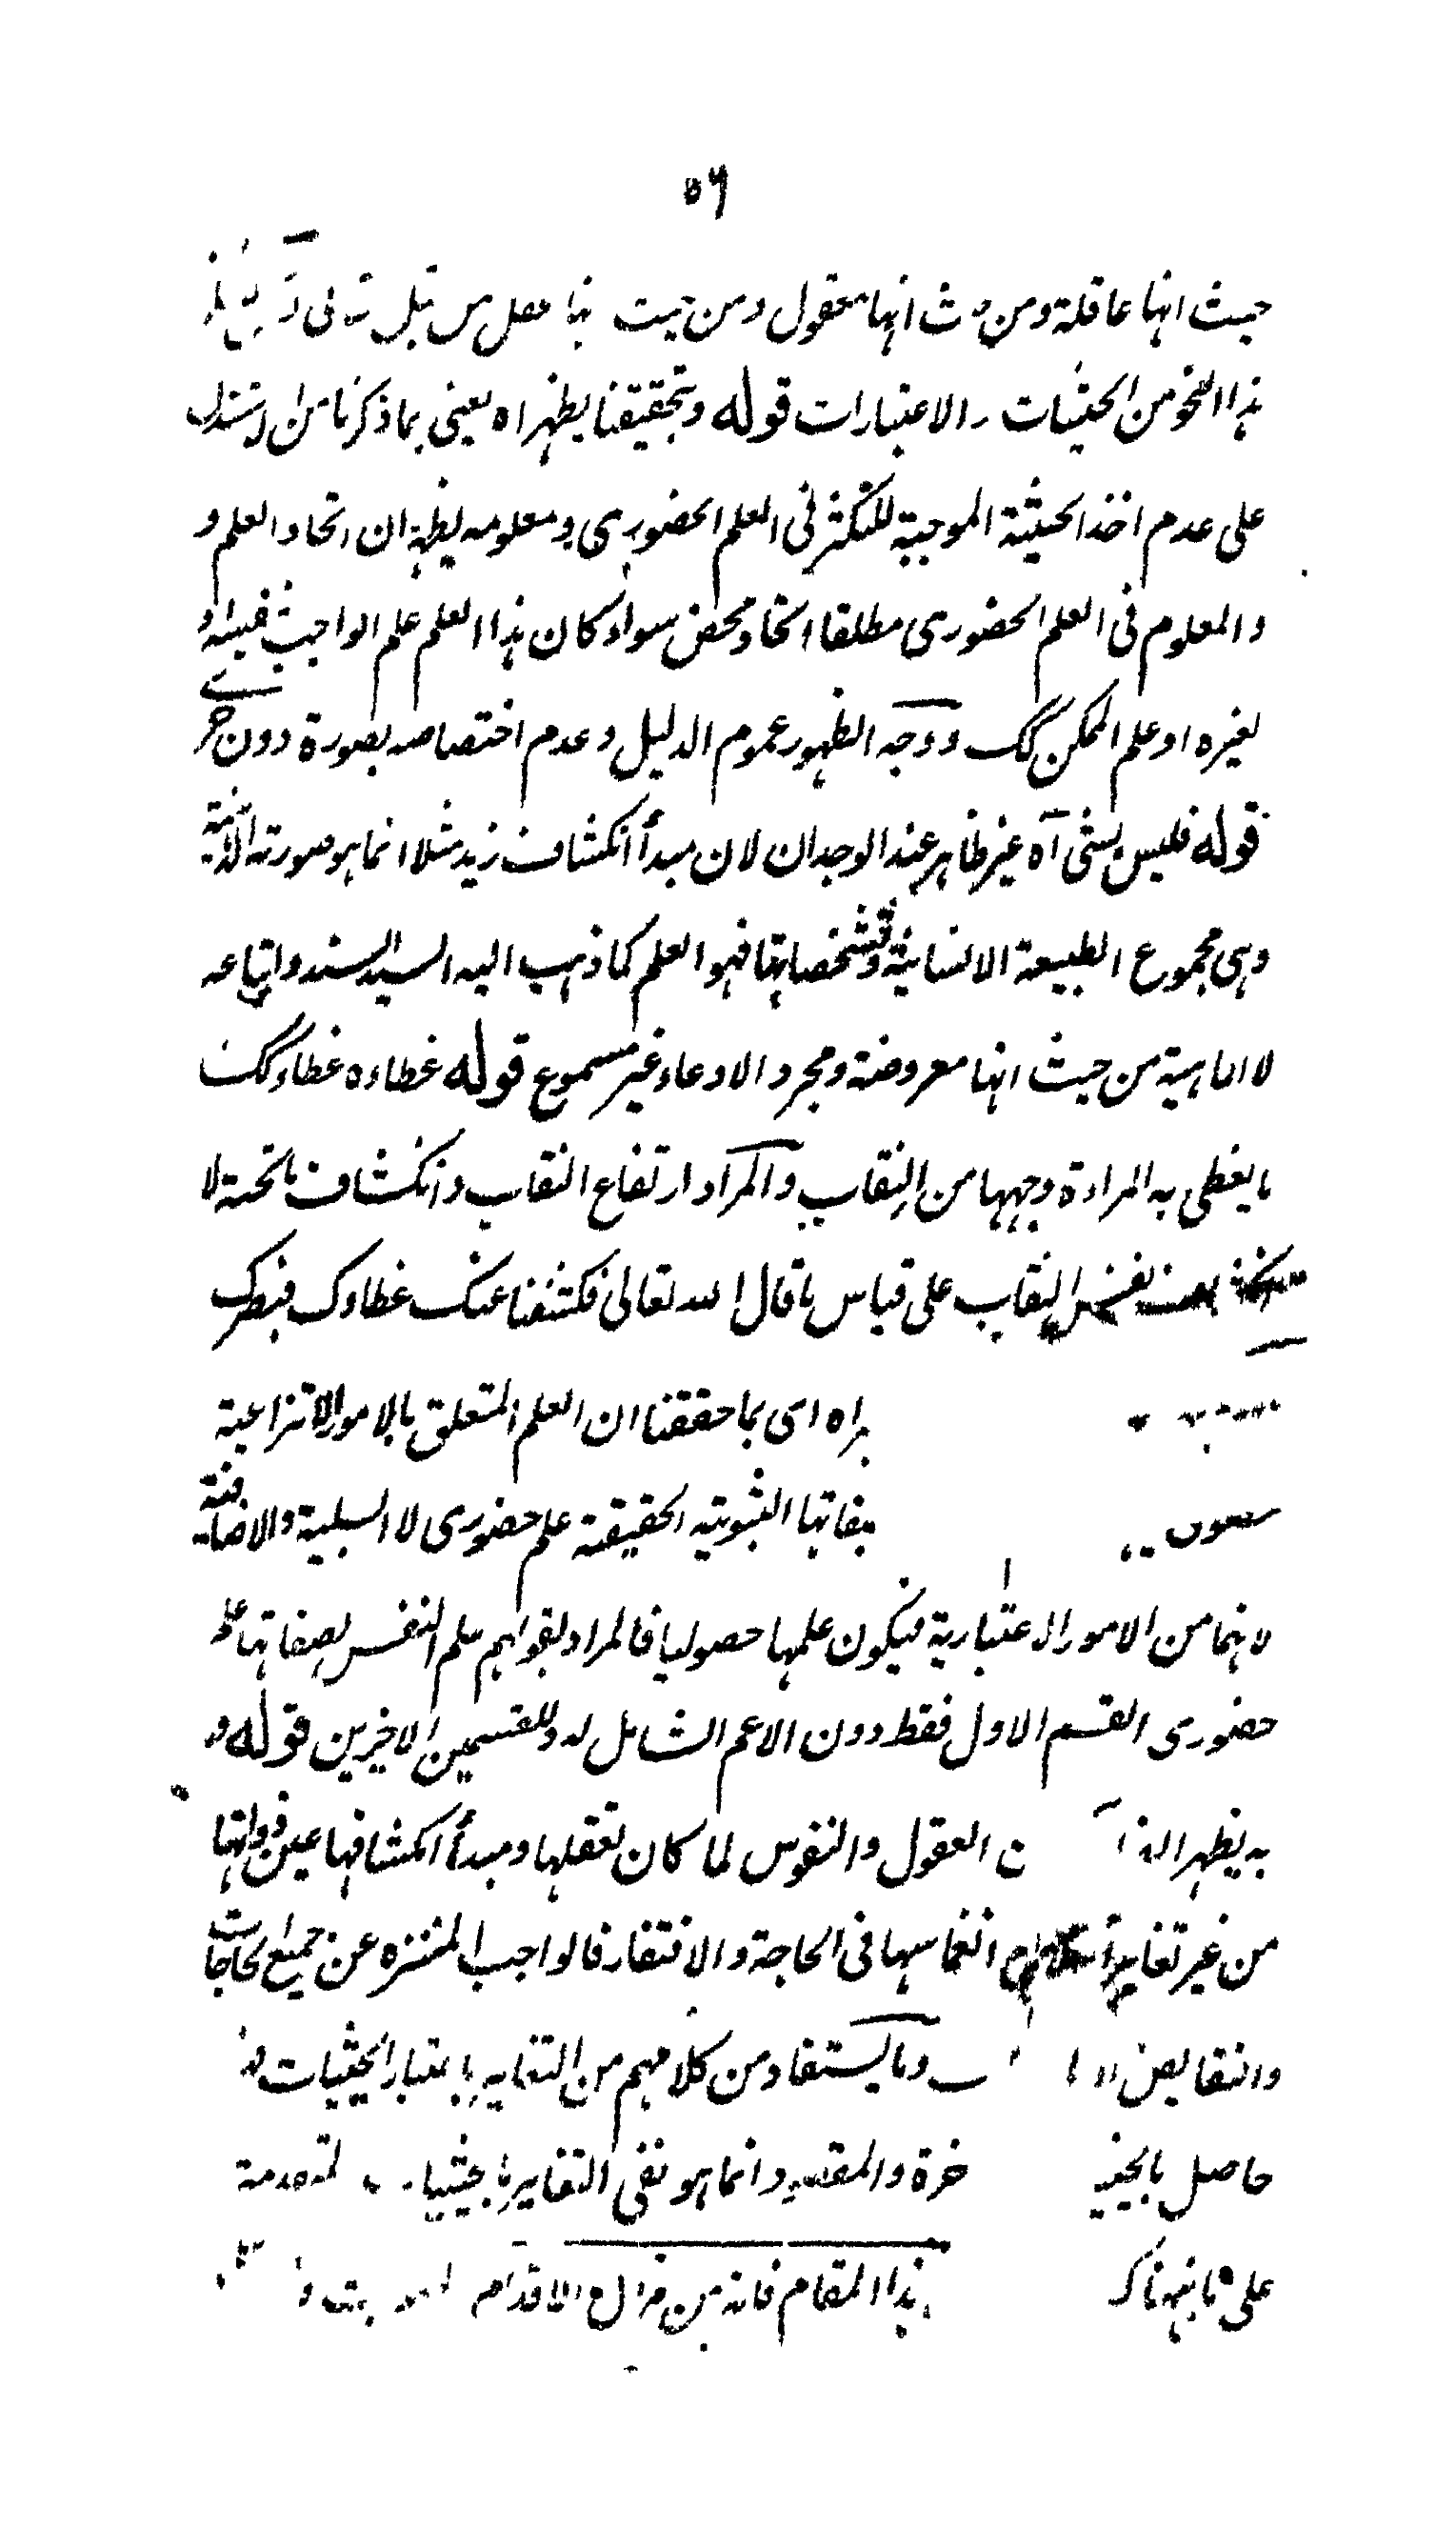 ٥٦
حيث انها عاقلة ومن حيث انها معقول ومن حيث
هذا النحو من الحيثيات والاعتبارات قوله وبتحقيقنا يظهر اه يعنى بما ذكرنا من
على عدم اخذ الحيثية الموجبة للتكثر فى العلم الحضورى ومعلومه يظهر ان اتحاد العلم و
والمعلوم فى العلم الحضورى مطلقا اتحاد محض سواء كان هذا العلم علم الواجب لنفسه او
لغيره او علم الممكن كك ووجه الظهور عموم الدليل وعدم اختصاصه بصورة دون اخرى
قوله فليس بشئ آه غير ظاهر عند الوجدان لان مبدأ انكشاف زيد مثلا انما هو صورته الذهنية
وهى مجموع الطبيعة الانسانية وتشخصاتها فهو العلم كما ذهب اليه السيد السند واتباعه
لا الماهية من حيث انها معروضة ومجرد الادعاء غير مسموع قوله غطاءه غطاءكك
ما يغطى به المراءة وجهها من النقاب والمراد ارتفاع النقاب وانكشاف ما تحته لا
نفس النقاب على قياس ما قال الله تعالى فكشفنا عنك غطاءك فبصرك
اه اى بما حققنا ان العلم المتعلق بالامور الانتزاعية
بصفاتها الثبوتية الحقيقية علم حضورى لا السلبية والاضافية
لانهما من الامور الاعتبارية فيكون علمها حصوليا فالمراد بقولهم علم النفس بصفاتها علم
حضورى القسم الاول فقط دون الاعم الشامل له وللقسمين الاخيرين قوله و
به يظهر العقول والنفوس لما كان تعقلها ومبدأ انكشافها عين ذواتها
من غير تغاير انغماسها فى الحاجة والافتقار فالواجب المنزه عن جميع الحاجات
والنقايص وما يستفاد من كلامهم من التغاير باعتبار الحيثيات
حاصل والمقصود انما هو نفى التغاير المتقدمة
على ما نبهناك هذا المقام فانه من مزال الاقدام